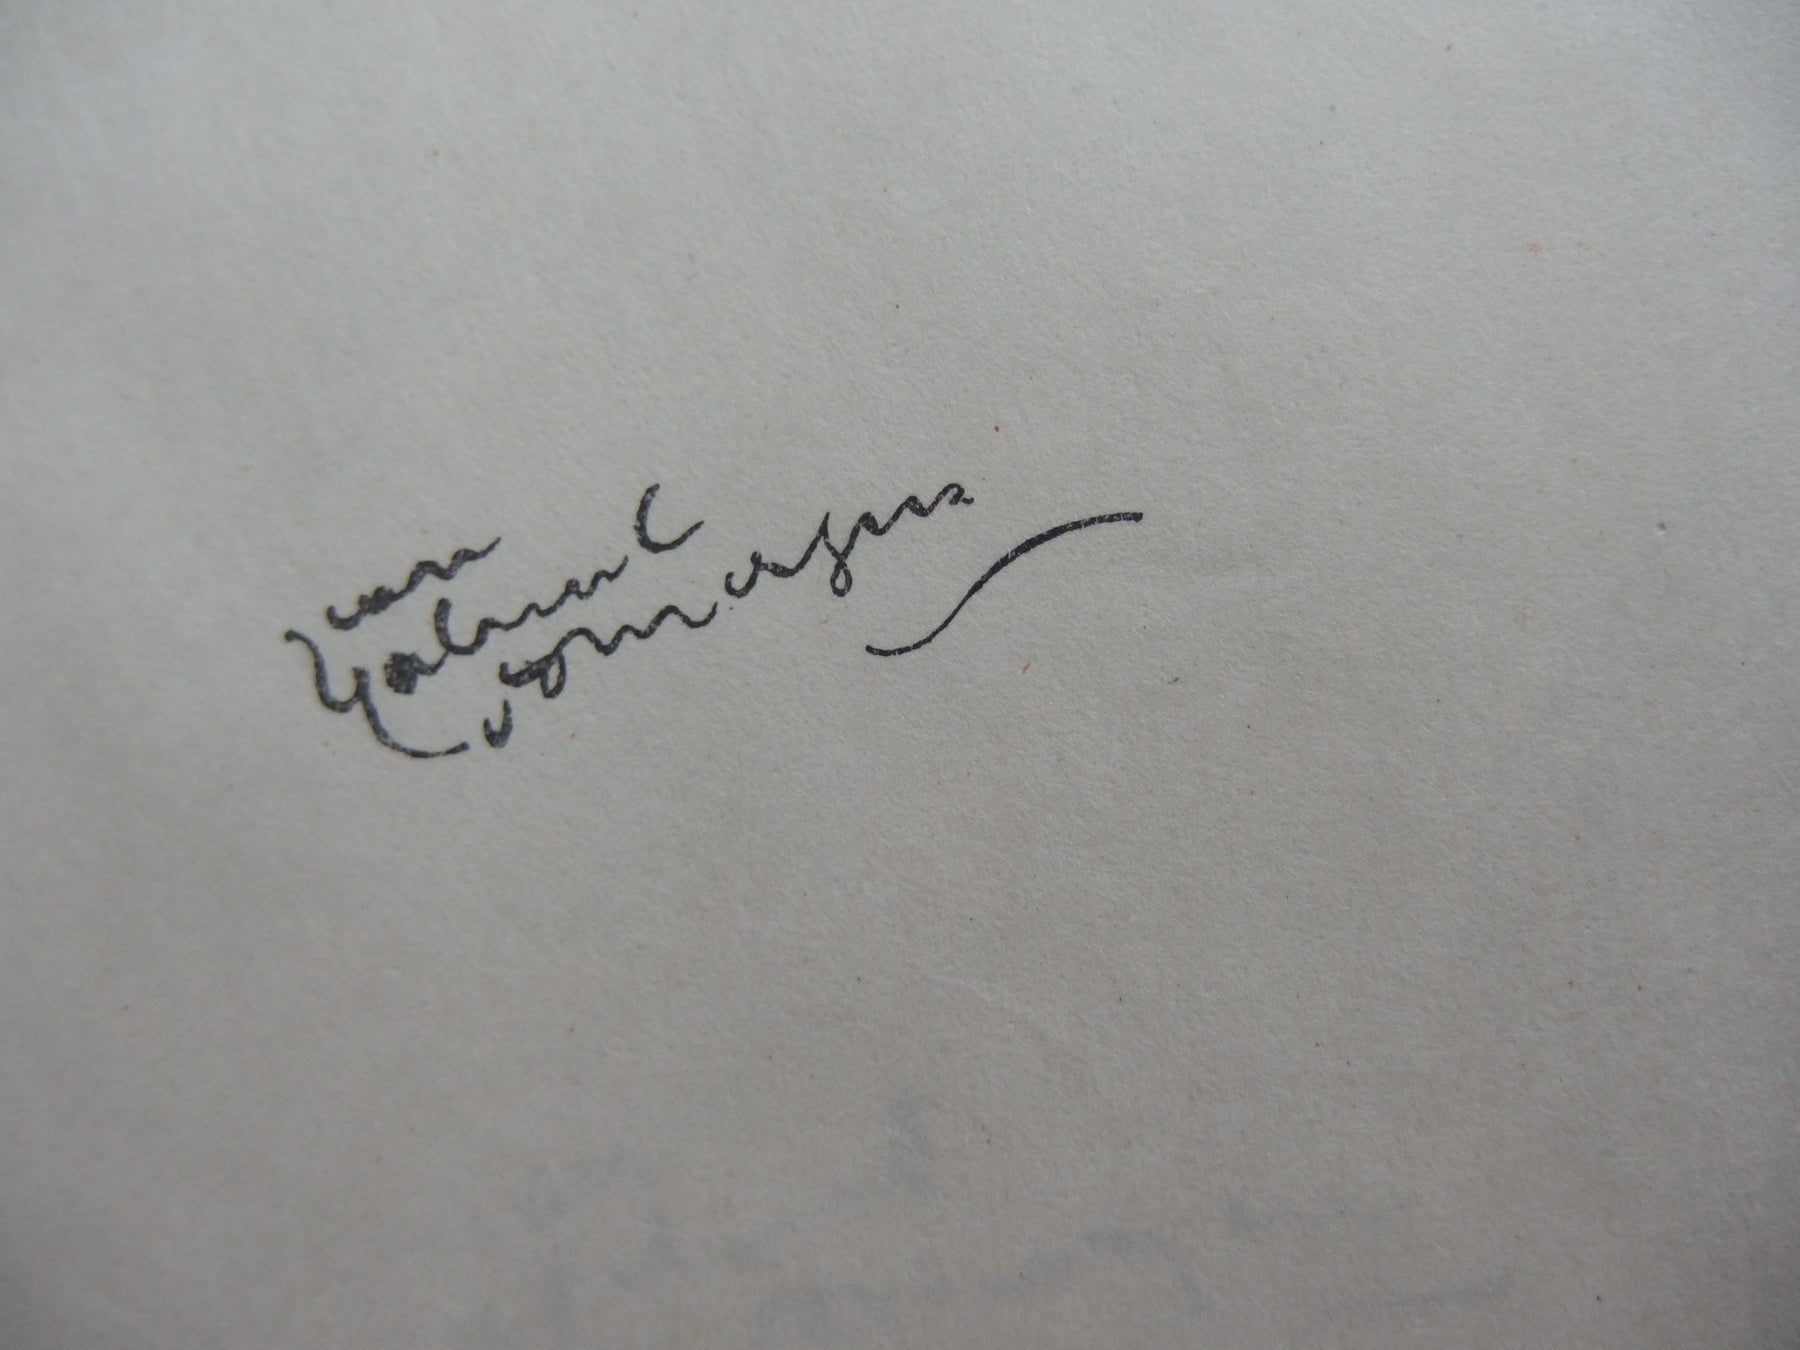 jean
Gabriel
Domergue